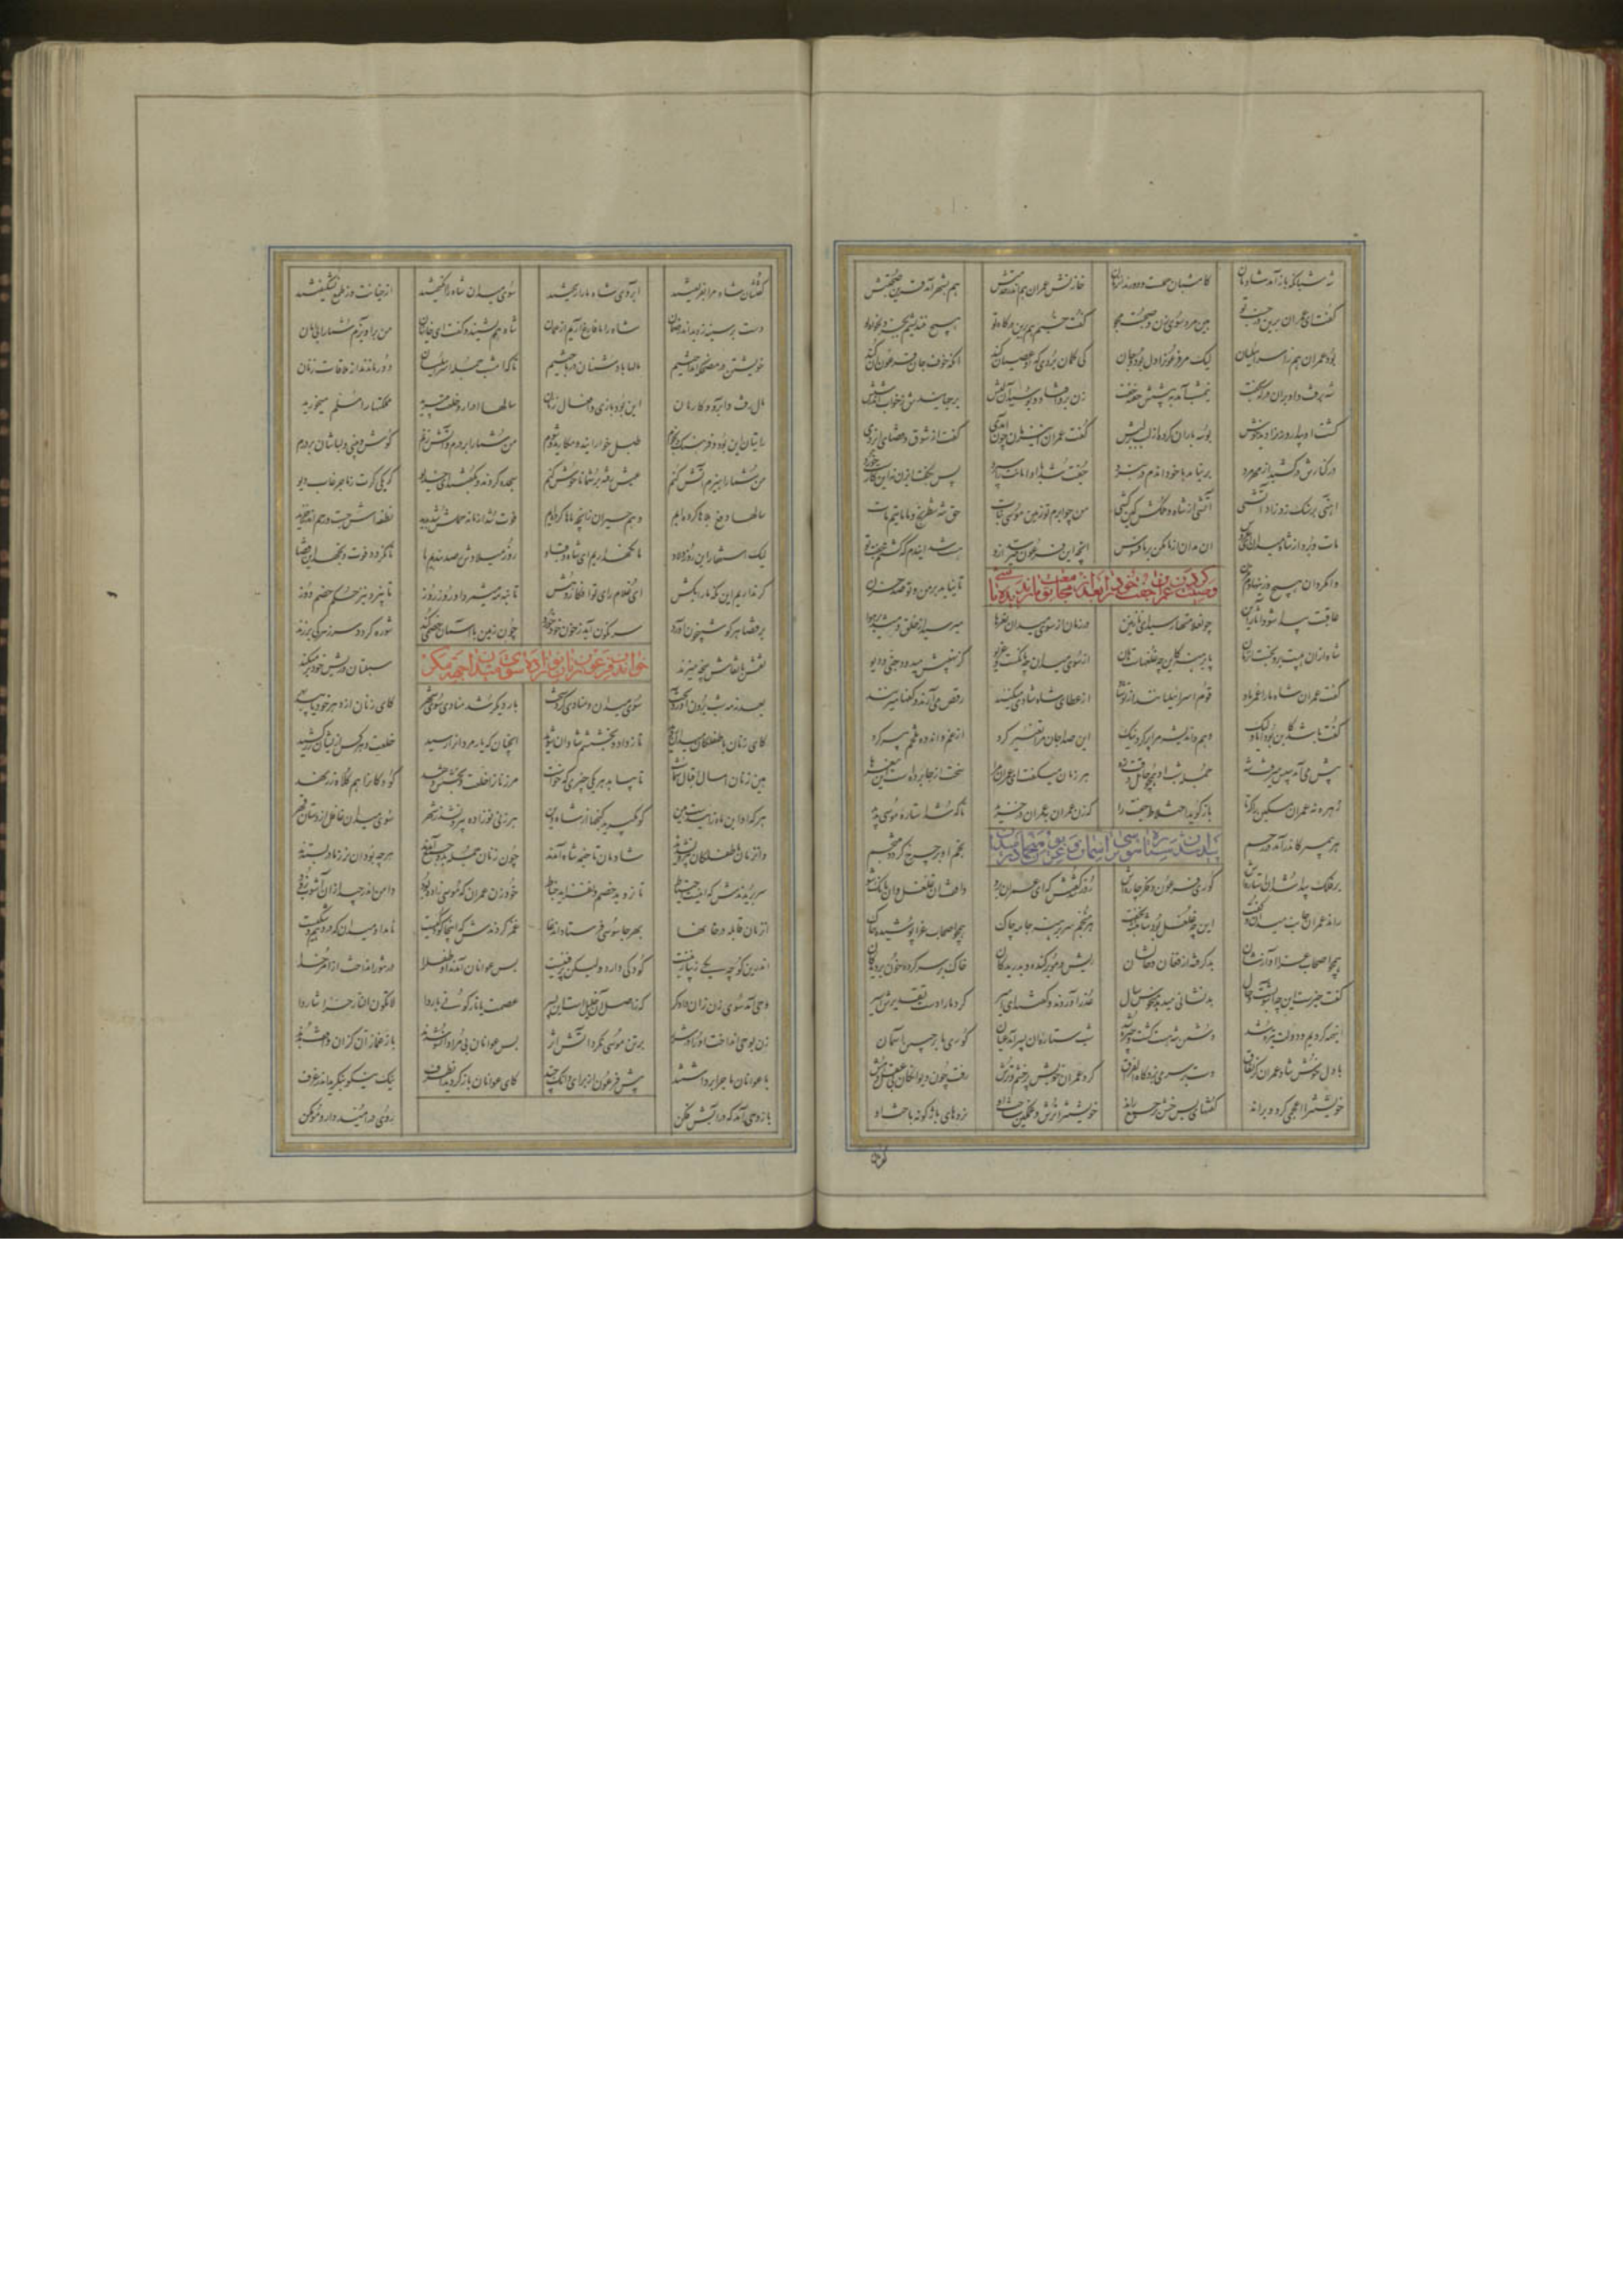 شه شبانگه باز آمد شادمان کامشبان حملست و دورند از زنان خازنش عمران هم اندر خدمتش هم بشهر آمد قرین صحبتش
گفت ای عمران برین در خسب تو هین مرو سوی زن و صحبت مجو گفت خسپم هم برین درگاه تو هیچ نندیشم بجز دلخواه تو
بود عمران هم ز اسرائیلیان لیک مر فرعون را دل بود و جان کی گمان بردی که او عصیان کند آنکه خوف جان فرعون آن کند
شه برفت و او بر آن درگه بخفت نیمشب آمد به پیشش خفته جفت زن برو افتاد و بوسید آن لبش برجهانیدش ز خواب اندر شبش
گشت او بیدار و زن را دید خوش بوسه باران کرده از لب بر لبش گفت عمران این زمان چون آمدی گفت از شوق و قضای ایزدی
در کنارش در کشید از مهر مرد بر نیامد با خود آن دم در نبرد جفت شد با او امانت را سپرد پس بگفت ای زن نه این کاریست خرد
آهنی بر سنگ زد زاد آتشی آتشی از شاه و ملکش کین کشی من چو ابرم تو زمین موسی نبات حق شه شطرنج و ما ماتیم مات
مات و برد از شاه میدان ای عروس آن مدان از ما مکن بر ما فسوس آنچه این فرعون میترسد ازو هست شد ایندم که گشتم جفت تو
وصیت کردن عمران جفت خود را بعد از مجامعت
وامگردان هیچ ازینها دم مزن تا نیاید بر من و تو صد حزن
عاقبت پیدا شود آثار این چون علامتها رسید ای نازنین در زمان از سوی میدان نعرها میرسید از خلق و پر میشد هوا
شاه از آن هیبت برون جست آن زمان پا برهنه کین چه غلغلهاست هان از سوی میدان چه بانگست و غریو کز نهیبش میرمد جنی و دیو
گفت عمران شاه ما را عمر باد قوم اسرائیلیانند از تو شاد از عطای شاه شادی میکنند رقص می آرند و کفها میزنند
گفت باشد کین بود اما ولیک وهم و اندیشه مرا پر کرد نیک این صدا جان مرا تغییر کرد از غم و اندوه تلخم پیر کرد
پیش می آمد سپس میرفت شه جمله شب او همچو حامل وقت زه هر زمان میگفت ای عمران مرا سخت از جا برده است این نعرها
زهره نه عمران مسکین را که تا باز گوید اختلاط جفت را که زن عمران بعمران در خزید تا که شد استاره موسی پدید
پیدا شدن ستاره موسی بر آسمان و غریو منجمان در میدان
هر پیمبر کاندر آید در رحم نجم او بر چرخ گردد منتجم
بر فلک پیدا شد آن استاره اش کوری فرعون و مکر و چاره اش روز شد گفتش که ای عمران برو واقف آن غلغل و آن بانگ شو
راند عمران جانب میدان و گفت این چه غلغل بود شاهنشه نخفت هر منجم سر برهنه جامه چاک همچو اصحاب عزا پوشیده خاک
همچو اصحاب عزا آوازشان بد گرفته از فغان و سازشان ریش و مو برکنده رو بدریدگان خاک بر سر کرده خون پر دیدگان
گفت خیرست این چه آشوبست و حال بد نشانی میدهد منحوس سال عذر آوردند و گفتند ای امیر کرد ما را دست تقدیرش اسیر
اینهمه کردیم و دولت تیره شد دشمن شه هست گشت و چیره شد شب ستاره آن پسر آمد عیان کوری ما بر جبین آسمان
با دل خوش شاد عمران وز نفاق دست بر سر میزد کاه الفراق کرد عمران خویش پر خشم و ترش رفت چون دیوانگان بی عقل و هش
خویشتن را اعجمی کرد و براند گفتهای بس خشن بر جمع خواند خویشتن را ترش و غمگین ساخت او نردهای بازگونه باخت او
گفتشان شاه مرا بفریفتید ابروی شاه ما را ریختید سوی میدان شاه را انگیختید از خیانت وز طمع نشکیفتید
دست بر سینه زدند اندر ضمان شاه را ما فارغ آریم از غمان شاه هم بشنید و گفت ای خاینان من بر آویزم شما را بی امان
خویشتن در مضحکه انداختیم مالها با دشمنان در باختیم تا که امشب جمله اسرائیلیان دور ماندند از ملاقات زنان
مال رفت و آب رو و کار این بود یاری و افعال سالها ادرار و خلعت میبرید مملکتها را مسلم میخورید
رایتان این بود و فرهنگ و نجوم طبل خوارانید و مکارید و شوم من شما را بر درم و آتش زنم گوش و بینی و لبانتان بر درم
من شما را هیزم آتش کنم عیش رفته بر شما ناخوش کنم سجده کردند و بگفتند ای خدیو گر یکی کرت ز ما چربید دیو
سالها دفع بلاها کرده ایم وهم حیران زانچه ماها کرده ایم فوت شد از ما و حملش شد پدید نطفه اش جست و رحم اندر خزید
لیک استغفار این روز ولاد ما نگه داریم ای شاه و قباد روز میلادش رصد بندیم ما تا نگردد فوت و نجهد این قضا
گر نداریم این نگه ما را بکش ای غلام رای تو افکار و هش تا بنه مه میشمرد او روز روز تا نپرد تیر حکم خصم دوز
بر قضا هر کو شبیخون آورد سرنگون آید ز خون خود خورد چون زمین با آسمان خصمی کند شوره گردد سر ز مرگی بر زند
نقش با نقاش پنجه میزند سبلتان و ریش خود بر میکند
خواندن فرعون زنان نوزاده را سوی میدان جهت مکر
بعد نه مه شه برون آورد تخت سوی میدان و منادی کرد سخت بار دیگر شد منادی سوی شهر کای زنان از دهر خود یابید بهر
کای زنان با طفلکان میدان روید تا ز داد و بخششم شادان شوید آنچنان که پار مردان را رسید خلعت و هر کس از ایشان زر کشید
هین زنان امسال اقبال شماست تا بیابد هر یکی چیزی که خواست مر زنان را خلعت و بخشش دهد کودکان را هم کلاه زر نهد
هر که او این ماه زاییدست هین گو بگیرد گنجها از شاه دین هر زنی نوزاده بیرون شد ز شهر سوی میدان غافل از دستان و قهر
وان زنان با طفلکان بیرون شدند شادمان تا خیمه شاه آمدند چون زنان جمله بدو گرد آمدند هر چه بود آن نر ز مادر بستدند
سر بریدندش که اینست احتیاط تا نروید خصم و نفزاید خباط خود زن عمران که موسی زاده بود دامن اندر چید از آن آشوب و دود
آن زنان قابله در خانها بهر جاسوسی فرستاد آن دغا غمز کردندش که اینجا کودکیست نامد او میدان که در وهم و شکیست
اندرین کوچه یکی زیبا زنیست کودکی دارد ولیکن پرفنیست پس عوانان آمدند او طفل را در تنور انداخت از امر خدا
وحی آمد سوی زن زان دادگر که ز اصل آن خلیلست این پسر عصمت یا نار کونی باردا لا تکون النار حرا شاردا
زن بوحی انداخت او را در شرر بر تن موسی نکرد آتش اثر پس عوانان بی مراد آن سو شدند باز غمازان کز آن واقف بدند
با عوانان ماجرا برداشتند پیش فرعون از برای دانگ چند کای عوانان باز گردید آن طرف نیک نیکو بنگرید اندر غرف
باز وحی آمد که در آبش فکن روی در امید دار و مو مکن